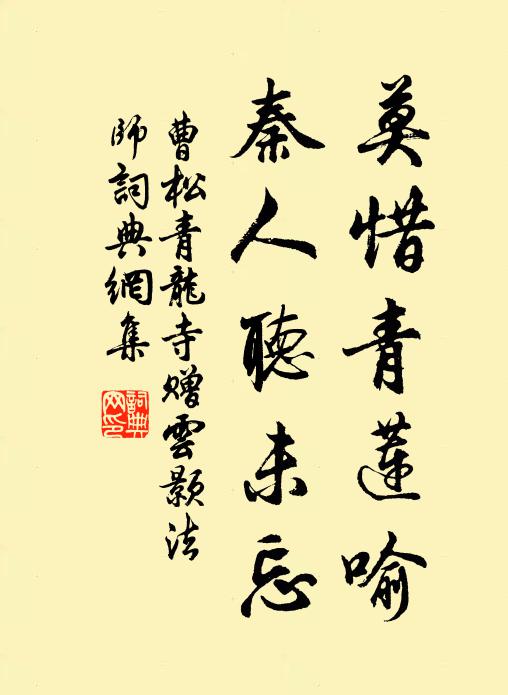 莫惜青蓮喻
秦人聽未忘
曹松青龍寺贈雲顥法
師詞典網集
詞典
网印